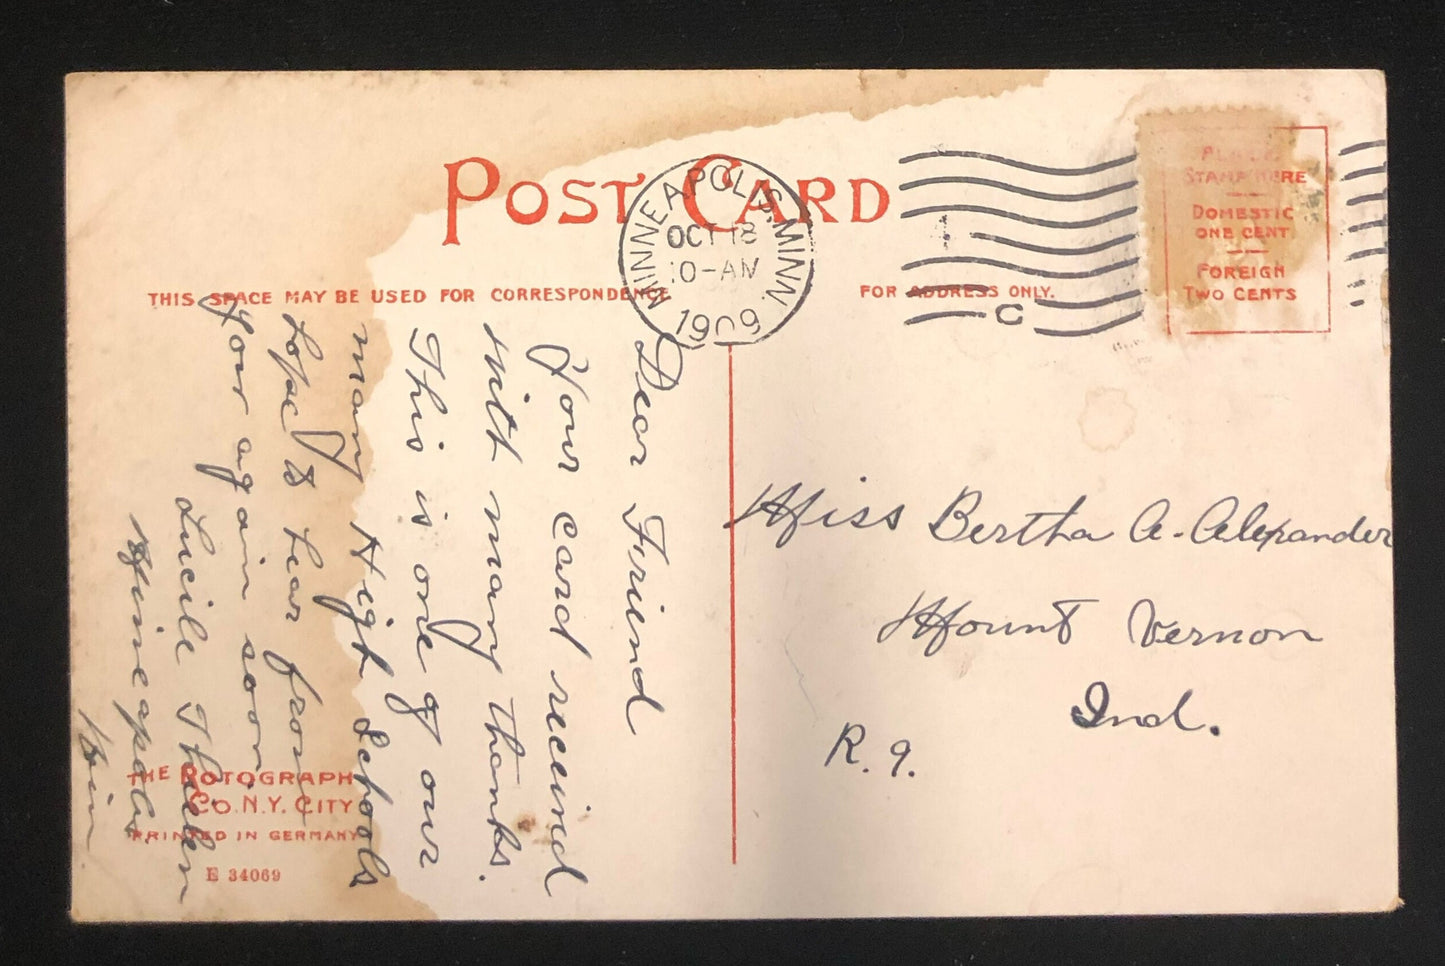 POST CARD
MINNEAPOLIS, MINN.
OCT 18
10-AM
1909
THIS SPACE MAY BE USED FOR CORRESPONDENCE
FOR ADDRESS ONLY.
C
PLACE
STAMP HERE
DOMESTIC
ONE CENT
FOREIGN
TWO CENTS
Dear Friend
Your card receind
with many thanks.
This is one of our
many High Schools
hope to hear from
your again soon.
Lucile
Minneapolis
Miss Bertha A. Alexander
Mount Vernon
Ind.
R. 9.
THE ROTOGRAPH
CO. N.Y. CITY
PRINTED IN GERMANY
E 34069